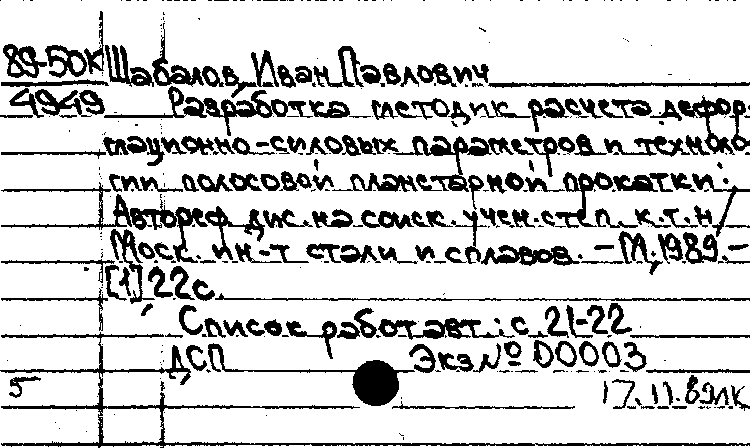 89-50К Шабалов Иван Павлович
4949 Разработка методик расчета дефор
мационно-силовых параметров и техноло
гии полосовой планетарной прокатки:
Автореф. дис. на соиск. учен. степ. к.т.н. /
Моск. ин-т стали и сплавов. – М., 1989. –
[1], 22 с.
Список работ авт.: с. 21-22
ДСП Экз № 00003
5 17.11.89 лк